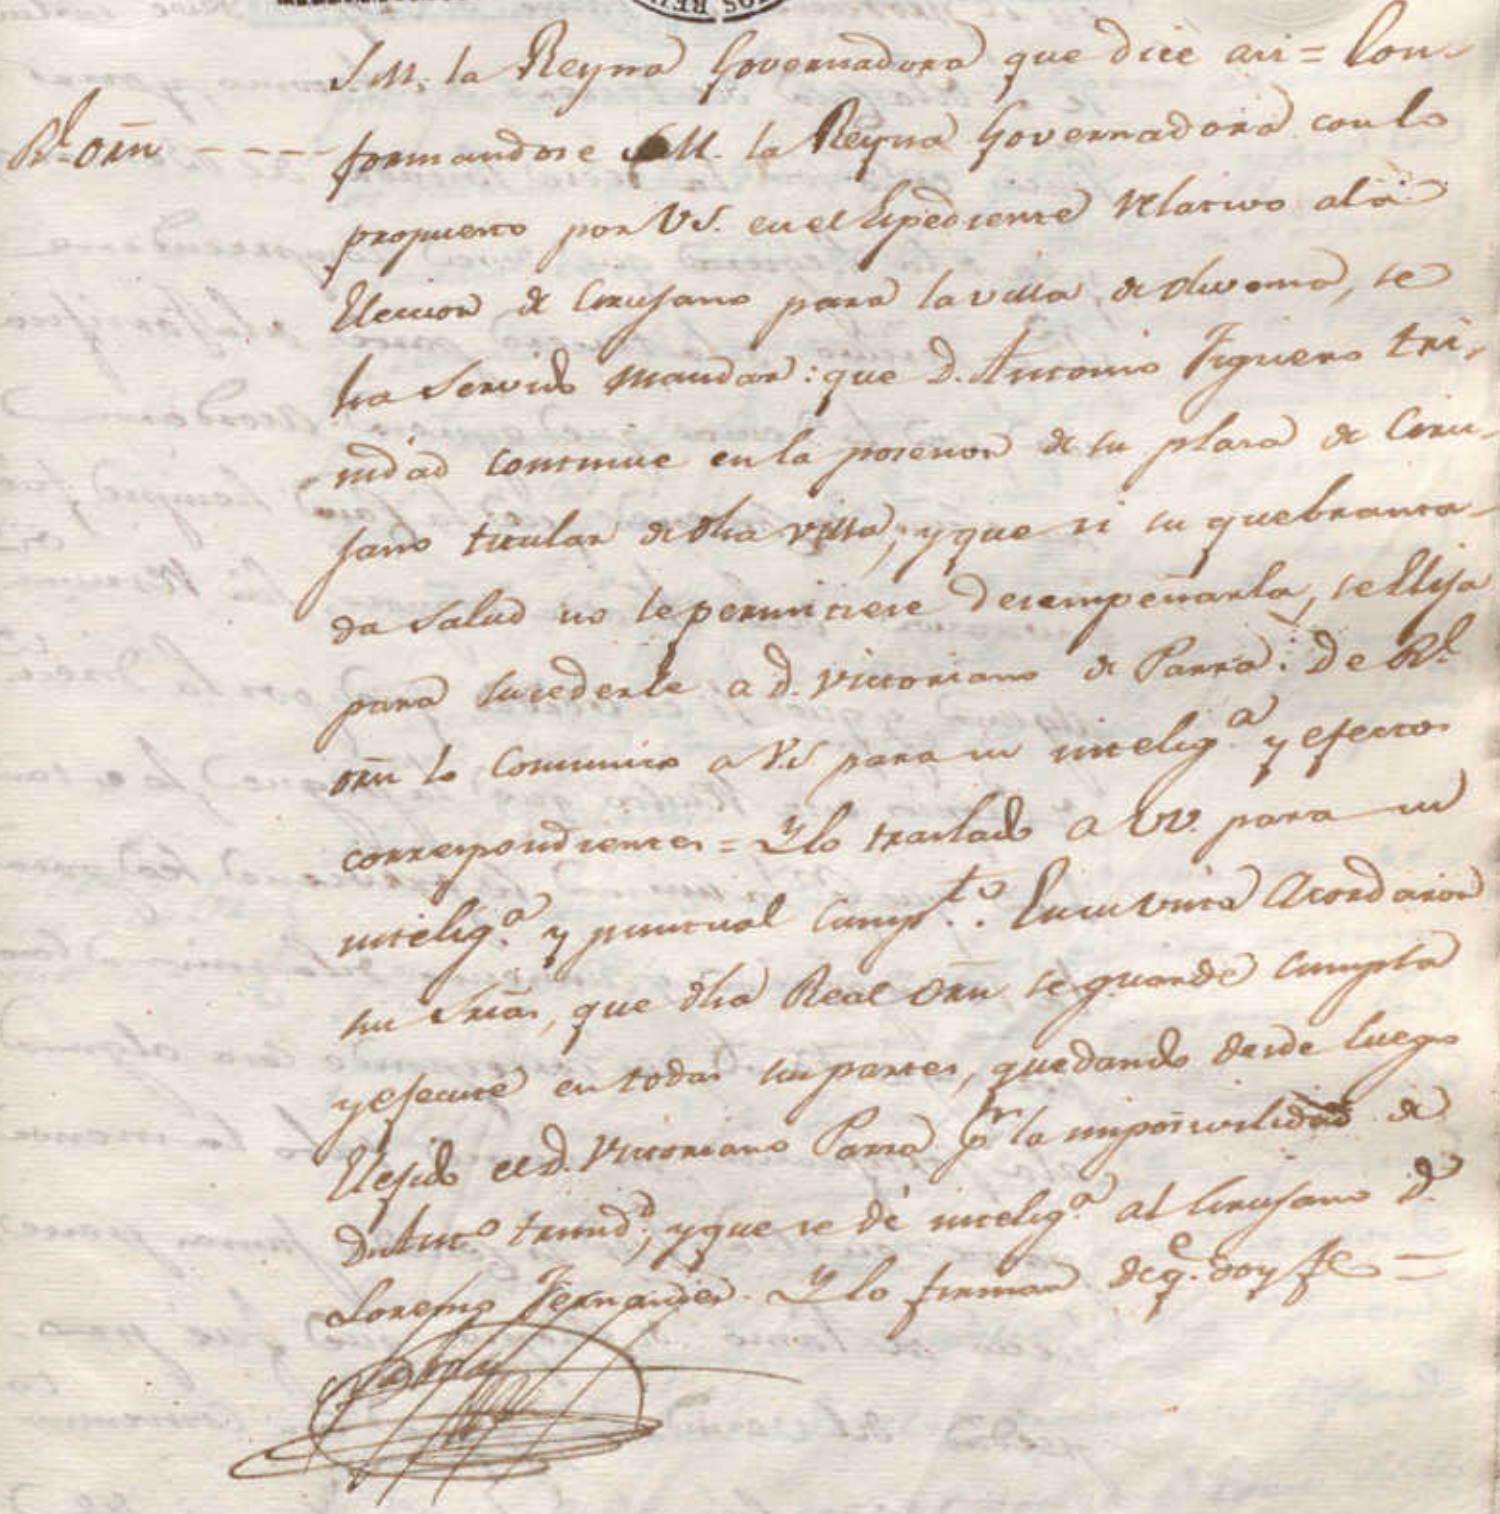 S.M. la Reyna Governadora que dice asi = Con-
Rl. orn ---- formandose S.M. la Reyna Governadora con lo
propuesto por VS. en el Espediente relativo a la
Eleccion de Cirujano para la villa de
ha servido mandar: que D. Antonio Figuero Tri-
nidad continue en la posesion de su plasa de Ciru-
jano titular de dha villa, y que si su quebranta-
da salud no le permitiese desempeñarla, se Elija
para sucederle a d. Victoriano de Parra: De Rl.
orn lo comunico a V.S para su intelig.a y efectos
correspondientes = Y lo traslado a VV. para su
intelig.a y puntual Cump.to. En su vista Acordaron
sus Srias, que dha Real Orn se guarde cumpla
y ejecute en todas sus partes, quedando desde luego
Elejido el d. Victoriano Parra pr la imposivilidad de
Dn Anto Trinidd, y que se dé intelig.a al Cirujano D.
Lorenzo Fernandez. Y lo firman de q.e doy fe =